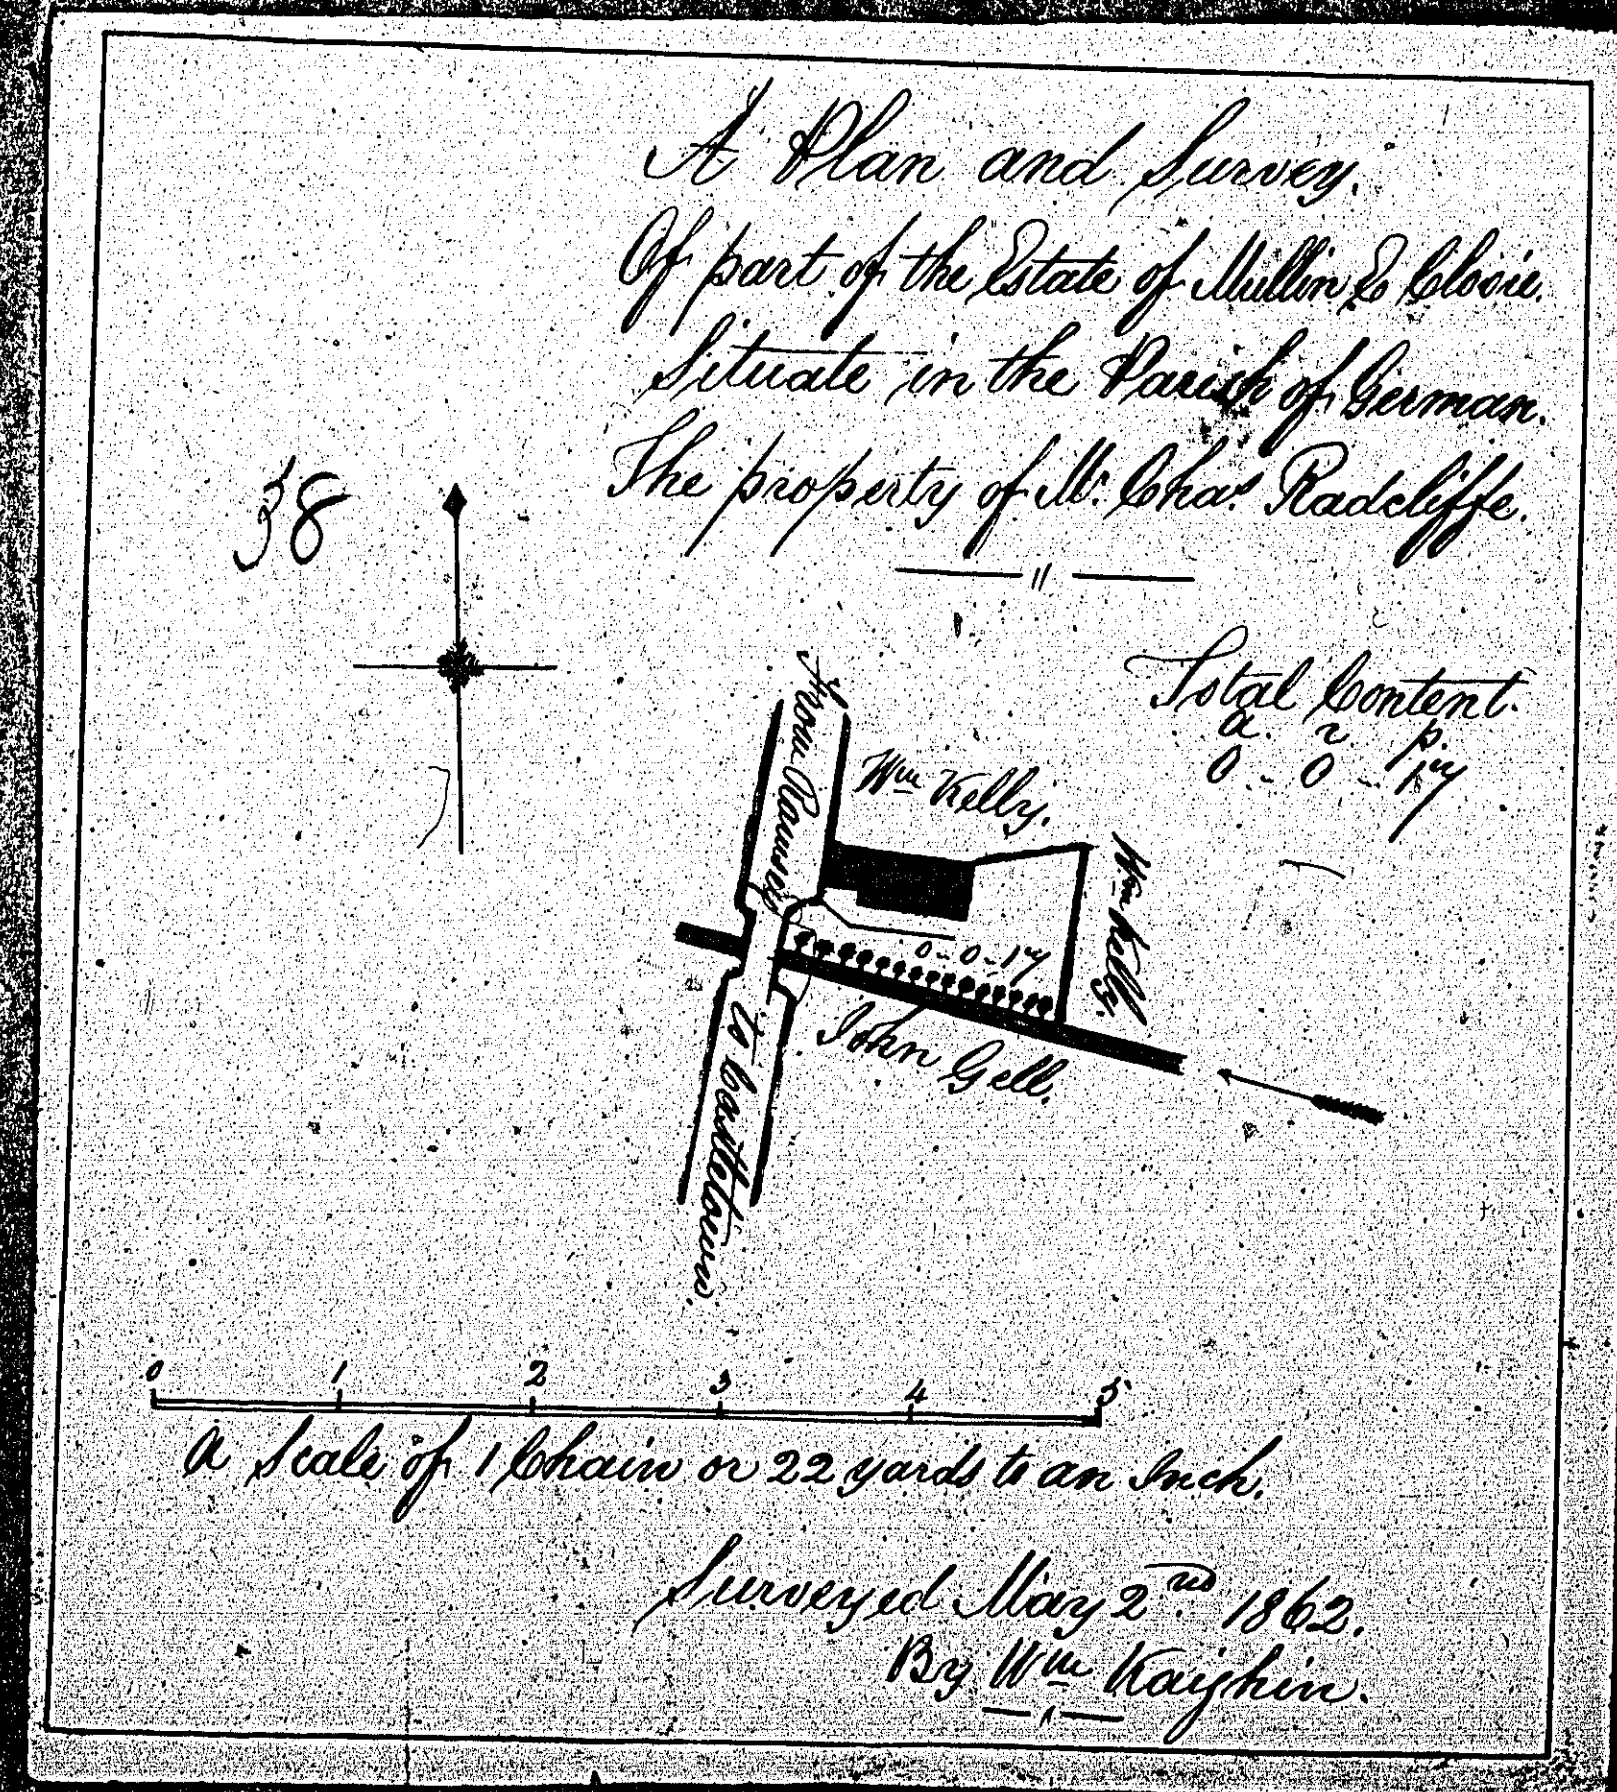 A Plan and Survey.
Of part of the Estate of Mullin E Closie.
Situate in the Parish of German.
The property of Mr. Chas. Radcliffe.
38
Total Content.
a. r. p.
0 - 0 - 17
From Ramsey
Wm Kelly.
Wm Kelly.
0 - 0 - 17
John Gell.
to Casttletown.
0 1 2 3 4 5
A Scale of 1 Chain or 22 yards to an Inch.
Surveyed May 2nd 1862.
By Wm Kaighin.